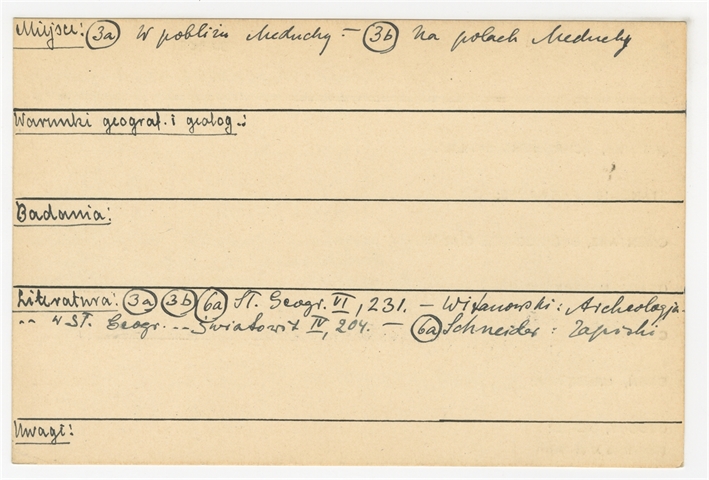 Miejsce: 3a W pobliżu Meduchy – 3b Na polach Meduchy
Warunki geograf. i geolog.:
Badania:
Literatura: 3a 3b 6a Sł. Geogr. VI, 231. – Witanowski: Archeologja
.. w Sł. Geogr... Światowit IV, 204. – 6a Schneider: Zapiski
Uwagi: